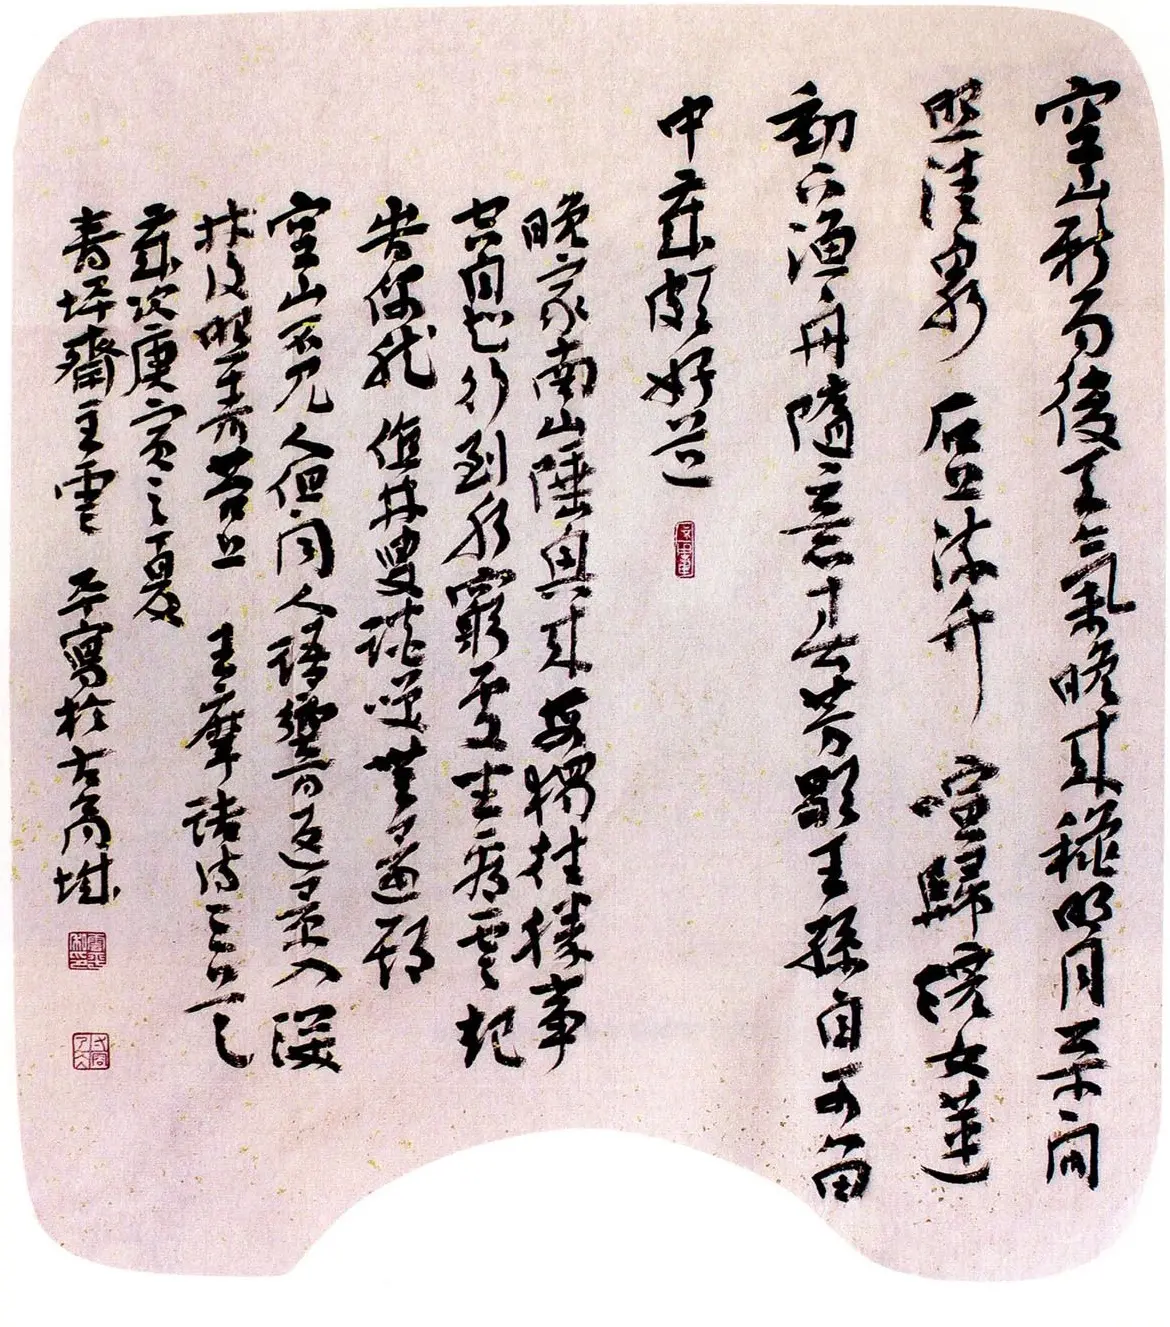 空山新雨後天氣晚來秋明月松間
照清泉石上流竹喧歸浣女蓮
動下漁舟隨意春芳歇王孫自可留
中歲頗好道
晚家南山陲興來每獨往勝事
空自知行到水窮處坐看雲起
旹偶然值林叟談笑無還期
空山不見人但聞人語響返景入深
林復照青苔上 王摩詰詩三首
歲次庚寅之夏
壽坪齋主雲平寫於古商城